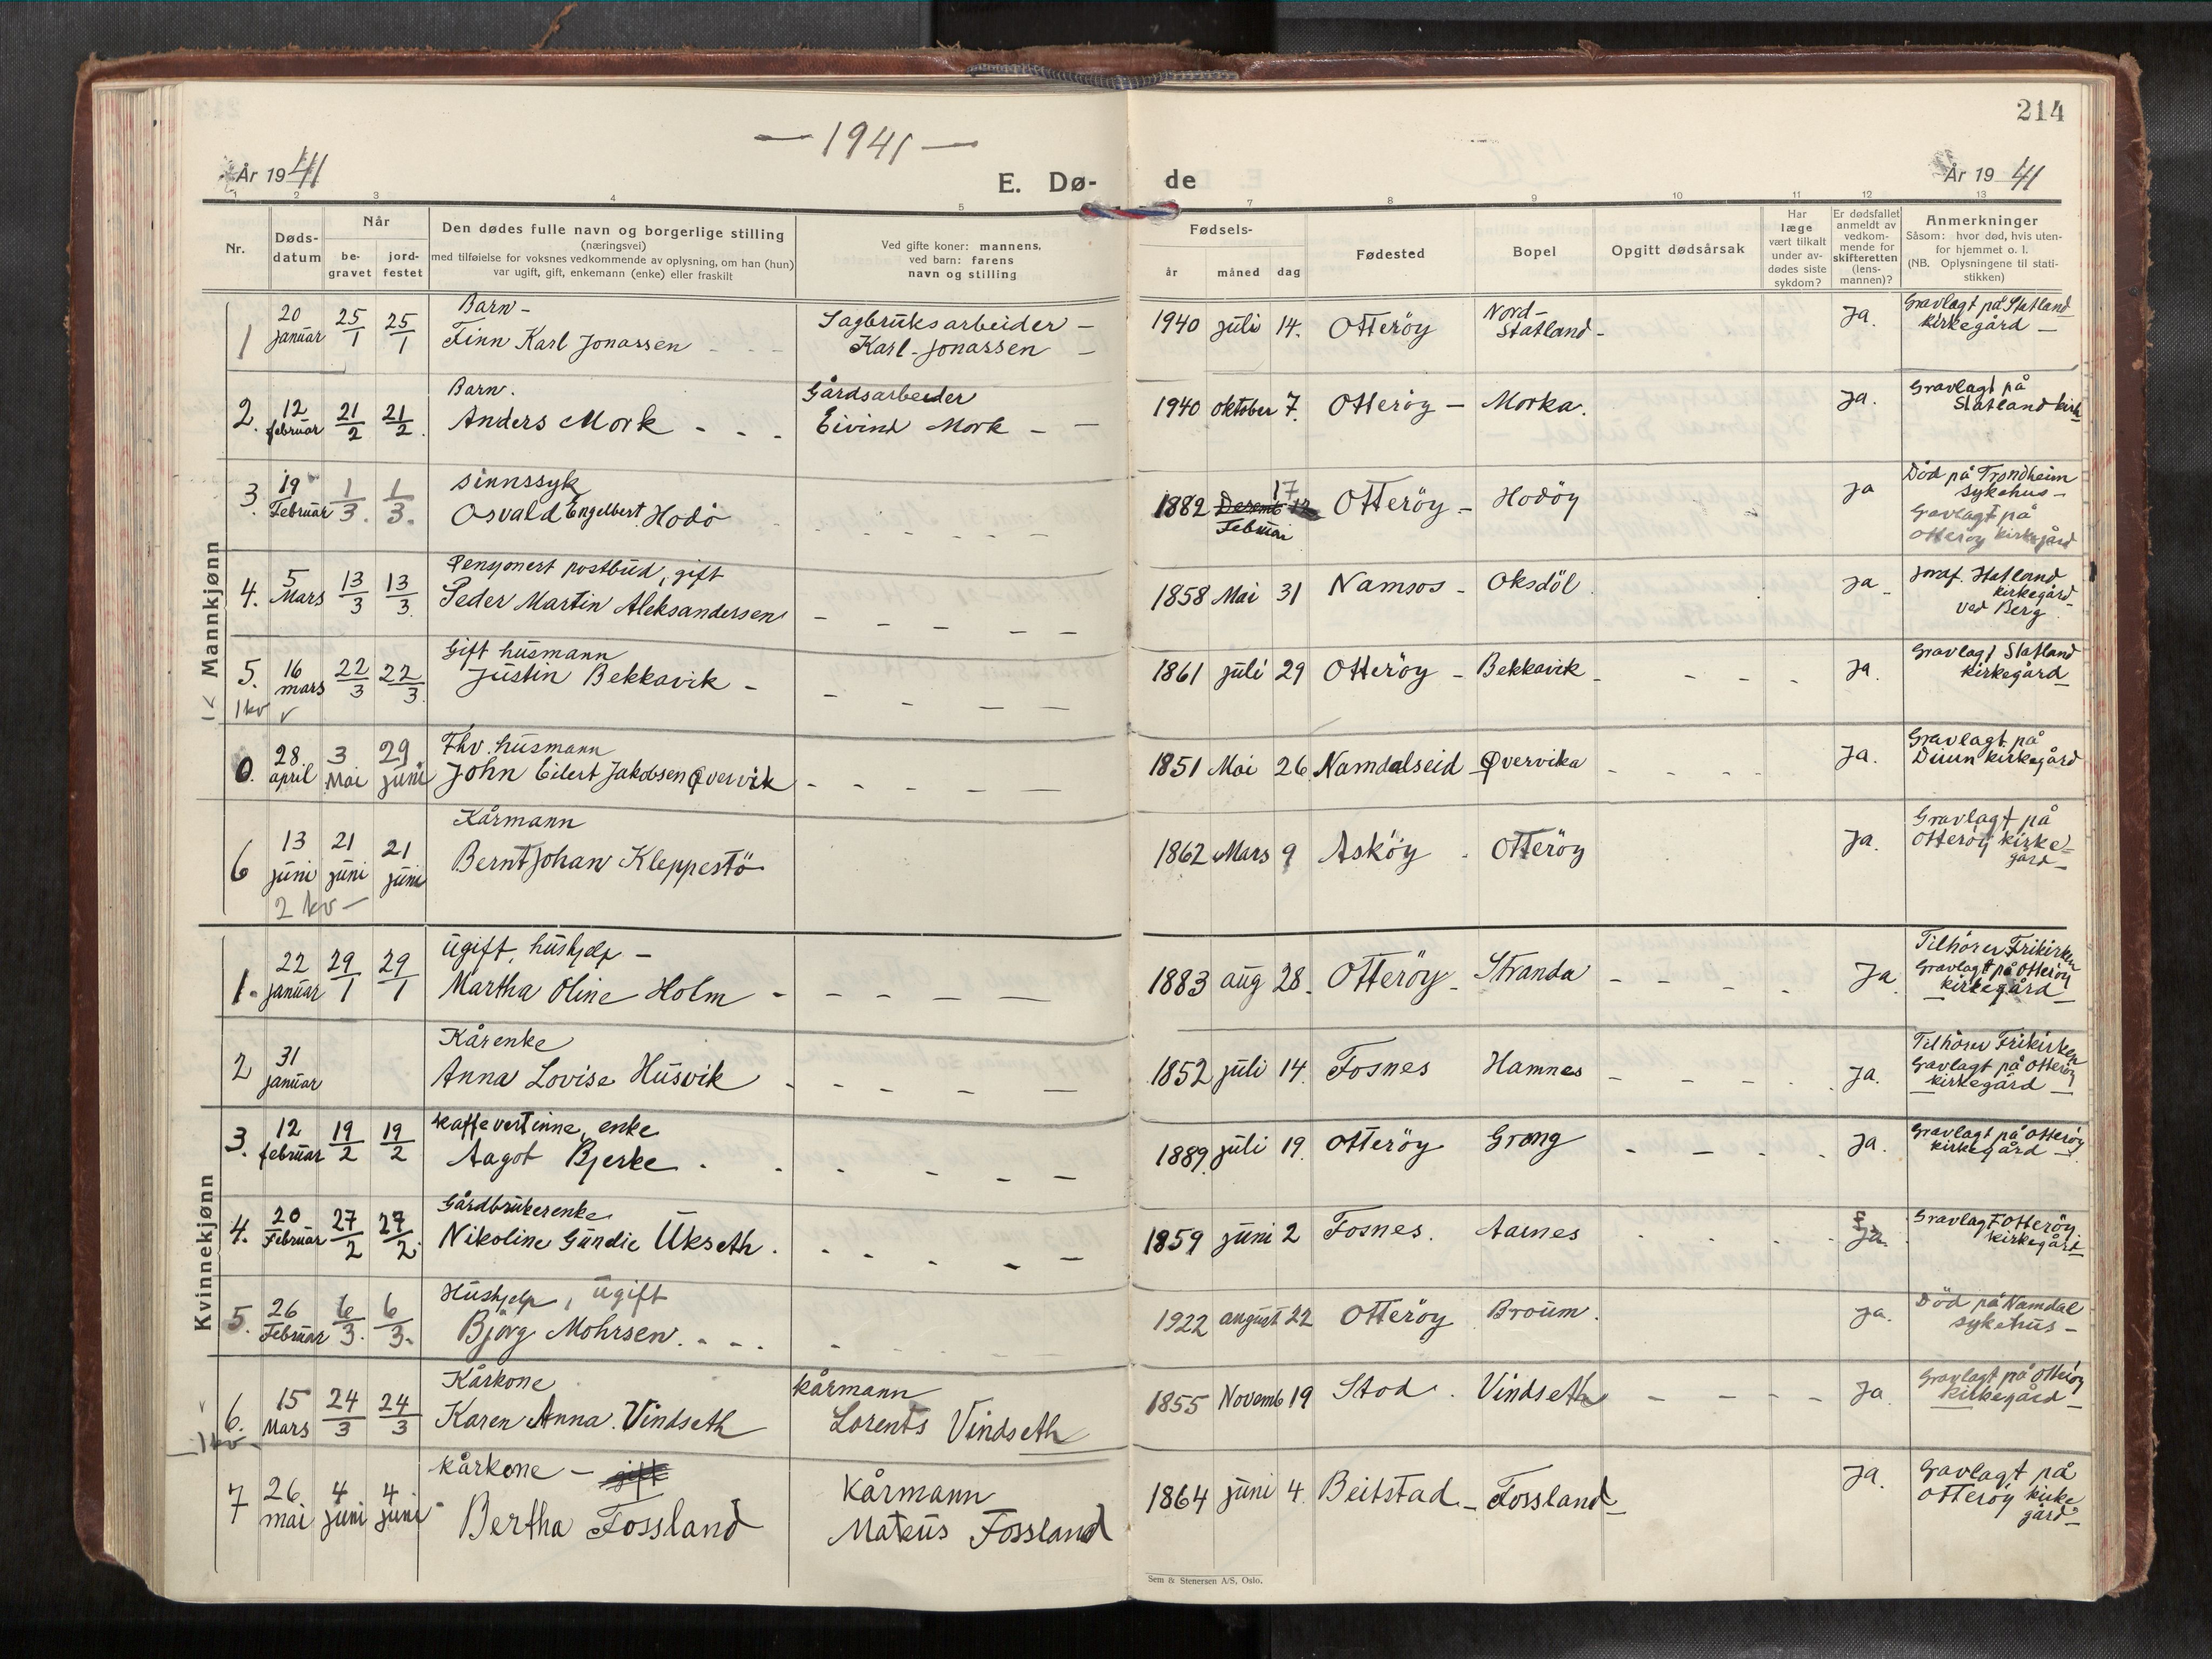 214
— 1941 —
År 1941
E. Dø-
de
År 1941
1 2 3 4 5 7 8 9 10 11 12 13
Nr.
Døds-
datum
Når
be-
gravet
jord-
festet
Den dødes fulle navn og borgerlige stilling
(næringsvei)
med tilføielse for voksnes vedkommende av oplysning, om han (hun)
var ugift, gift, enkemann (enke) eller fraskilt
Ved gifte koner: mannens,
ved barn: farens
navn og stilling
Fødsels-
år måned dag
Fødested
Bopel
Opgitt dødsårsak
Har
læge
vært tilkalt
under av-
dødes siste
sykdom?
Er dødsfallet
anmeldt av
vedkom-
mende for
skifteretten
(lens-
mannen)?
Anmerkninger
Såsom: hvor død, hvis uten-
for hjemmet o. l.
(NB. Oplysningene til stati-
stikken)
Mannkjønn
1 20 januar 25/1 25/1 Barn -
Finn Karl Jonassen
Sagbruksarbeider -
Karl Jonassen -
1940 juli 14. Otterøy Nord-
Statland - Ja. Gravlagt på Statland
kirkegård -
2. 12 februar 21/2 21/2. Barn.
Anders Mork - - -
Gårdsarbeider
Eivind Mork - -
1940 oktober 7. Otterøy - Morka. Ja. Gravlagt på
Statland kirk
3. 19 Februar 1/3. 1/3. sinnssyk
Osvald Engelbert Hodø
1882 Desemb 12 17
Februar Otterøy - Hodøy ja Död på Trondheim
sykehus -
Gavlagt på
Otterøy kirkegård
4. 5 Mars 13/3 13/3. Pensjonert postbud, gift
Peder Martin Aleksandersen - - - - -
1858 Mai 31 Namsos - Oksdöl ja - Jordf. Hatland
kirkegård
ved Berg
5. 16 mars 22/3 22/3. Gift husmann
Justin Bekkavik - - - - -
1 kv v
1861 juli 29 Otterøy - Bekkavik - - - - ja. Gravlagt Statland
kirkegård
0. 28 april 3 Mai 29 juni Fhv. husmann
John Eilert Jakobsen Qvervik - - - - -
1851 Mai 26. Namdalseid - Qvervika - - - - Ja. Gravlagt på
Duun kirkegård
6 13 juni 21 juni 21 juni Kårmann
Bernt Johan Kleppestö
2 kv -
1862 Mars 9 Asköy . Otteröy Ja. Gravlagt på
Otterøy kirke-
gård -
Kvinnekjønn
1. 22 januar 29/1 29/1 ugift, hushjelp -
Martha Oline Holm - - - - - -
1883 aug 28. Otterøy - Stranda - - - - Ja. Tilhörer Frikirken
Gravlagt på Otterøy
kirkegård -
2 31 januar Kårenke
Anna Lovise Husvik - - - - -
1852 juli 14. Fosnes Hamnes - - - - ja. Tilhörer Frikirken
Gavlagt på Otterøy
- kirkegård -
3. 12 februar 19/2 19/2 kaffevertinne, enke
Aagot Bjerke . . - - - -
1889. juli 19. Otterøy Grong - - - . Ja. Gravlagt på Otterøy
kirkegård -
4. 20 Februar 27/2 27/2. Gårdbrukerenke
Nikoline Gundie Ukseth . - - - - -
1859 juni 2 Fosnes. Aarnes Ja. Gravlagt Otterøy
kirkegård
5. 26 Februar 6/3. 6/3. Hushjelp, ugift
Bjørg Mohrsen. - - -
1922 august 22 Otterøy Broum. ja. Död på Namdal
sykehus -
6. 15 Mars 24/3 24/3 Kårkone
Karen Anna Vindseth
kårmann
Lorents Vindseth
1 kv -
1855 Novemb 19 Stod . Vindseth - - - - Ja Gravlagt på Otterøy
kirkegård -
7 26 mai 4 juni 4 juni kårkone - gift
Bertha Fossland
Kårmann
Mateus Fossland
1864 juni 4. Beitstad - Fossland - Ja. Gavlagt på
Otterøy kirke
gård -
Sem & Stenersen A/S, Oslo.